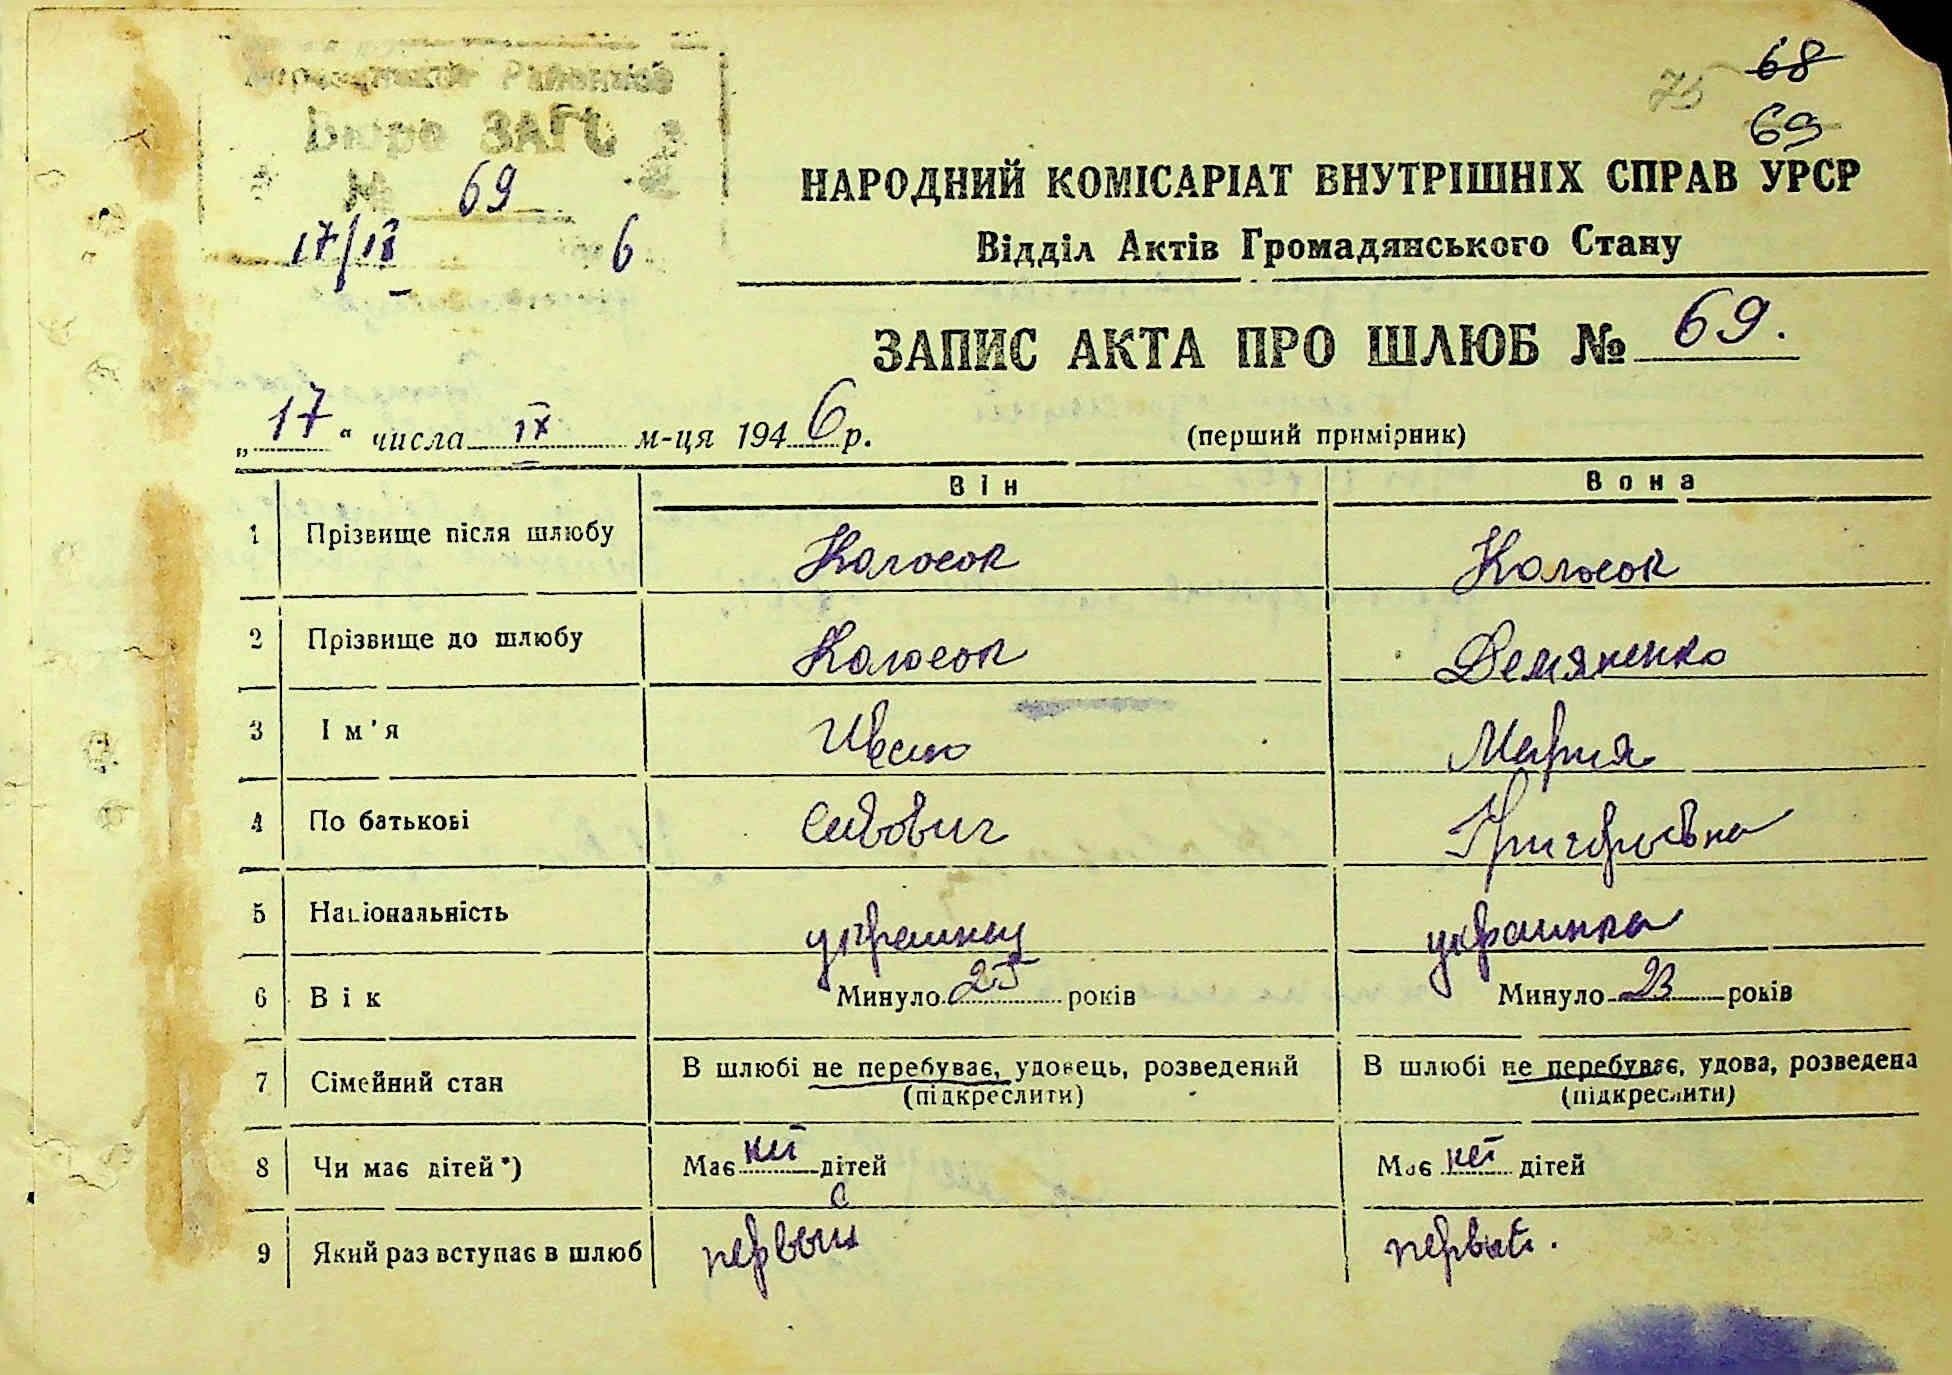 Районний
Бюро ЗАГС
№ 69
17/IX 6
75 68
69
НАРОДНИЙ КОМІСАРІАТ ВНУТРІШНІХ СПРАВ УРСР
Відділ Актів Громадянського Стану
ЗАПИС АКТА ПРО ШЛЮБ № 69.
„17“ числа IX м-ця 1946 р. (перший примірник)
Він Вона
1 Прізвище після шлюбу Колосок Колосок
2 Прізвище до шлюбу Колосок Демяненко
3 Ім'я Иван Мария
4 По батькові Савович Григорьевна
5 Національність украинец украинка
6 Вік Минуло 25 років Минуло 23 років
7 Сімейний стан В шлюбі не перебуває, удовець, розведений В шлюбі не перебуває, удова, розведена
(підкреслити) (підкреслити)
8 Чи має дітей*) Має нет дітей Має нет дітей
9 Який раз вступає в шлюб первый первый.